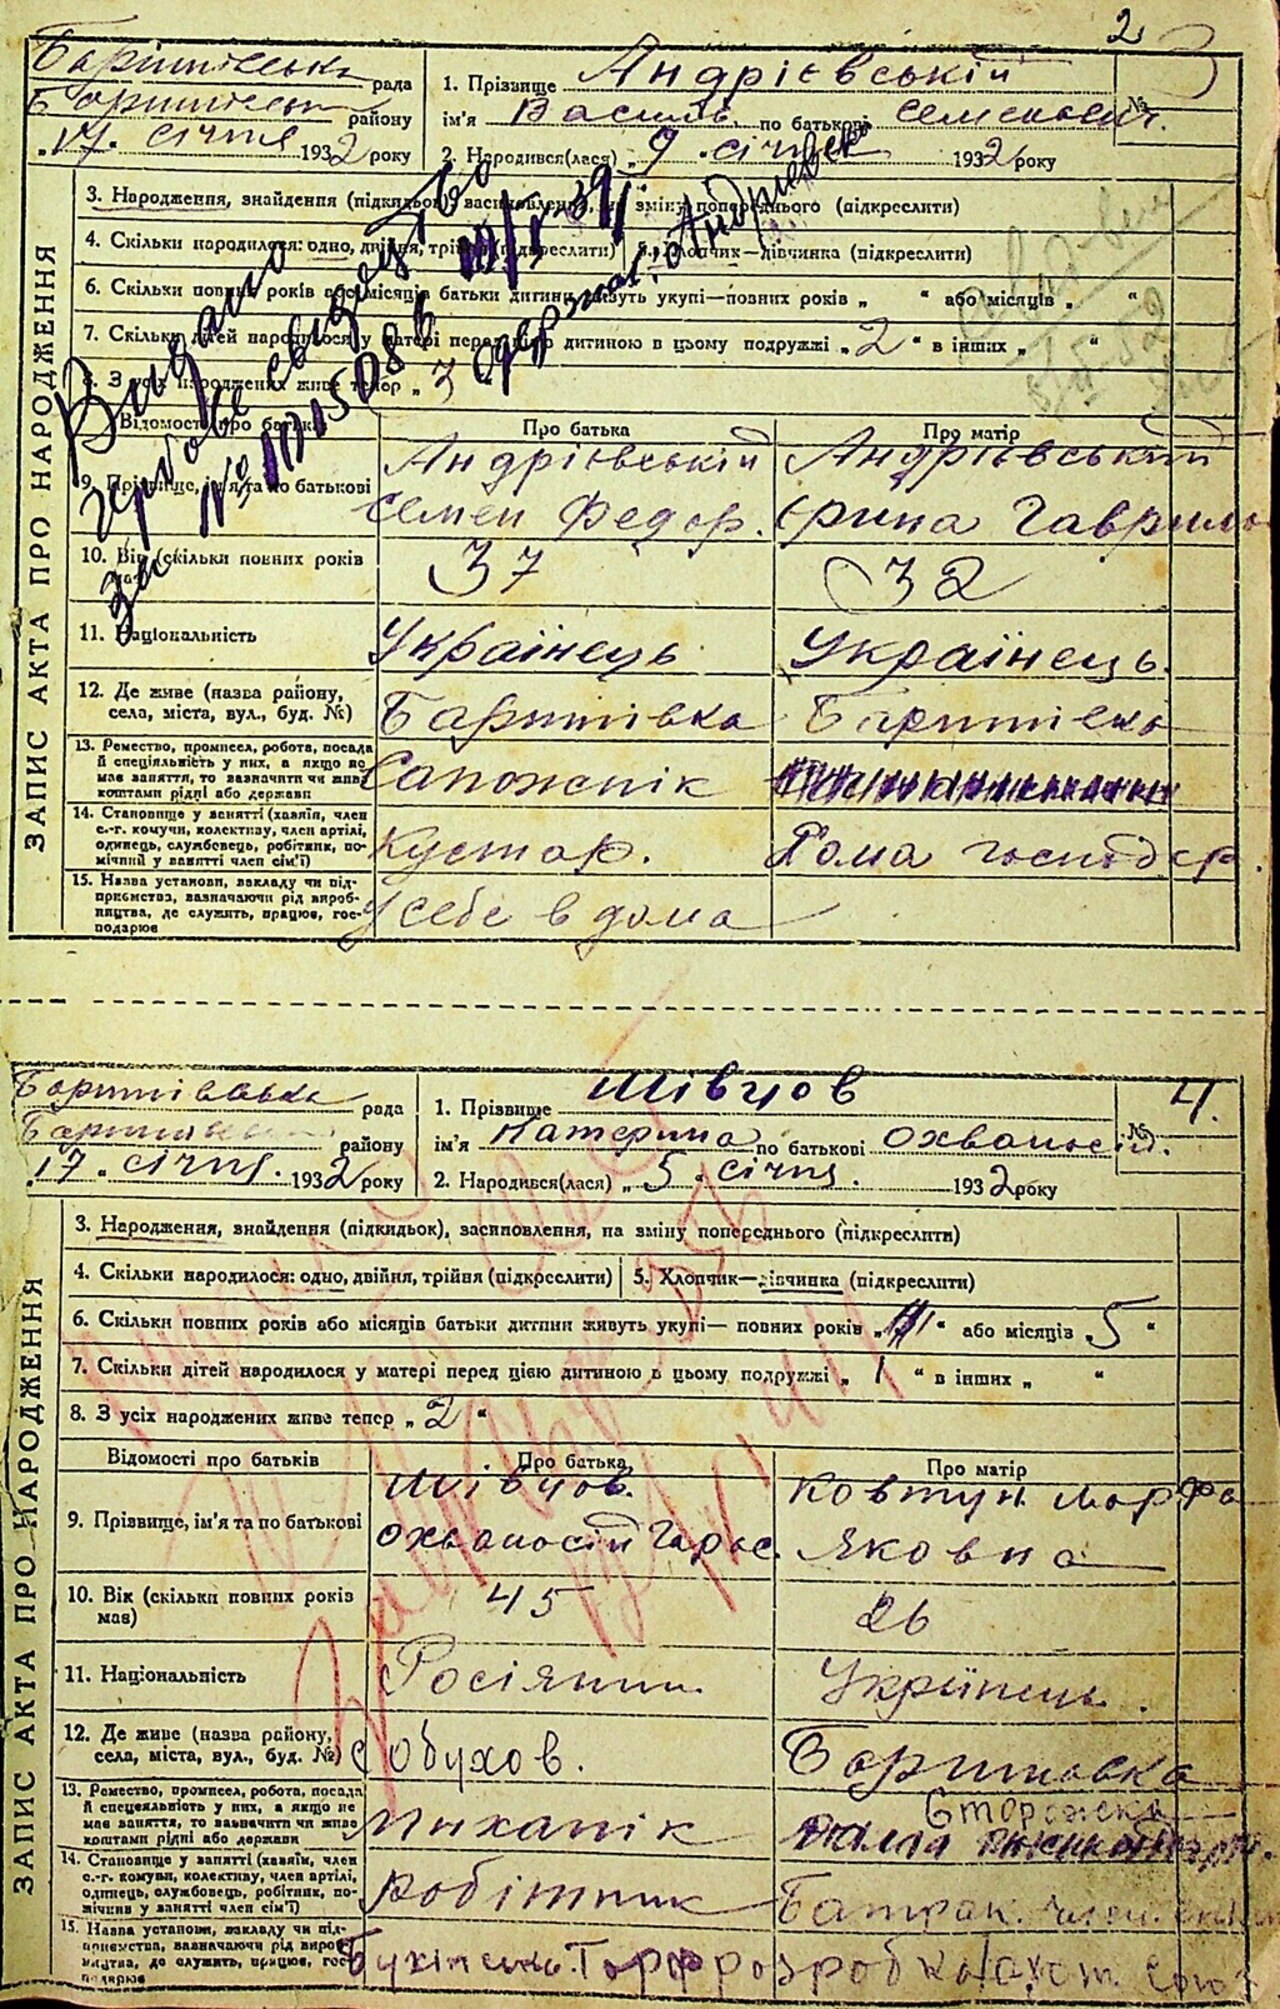 2
Баришівська рада
Баришівськ району
"17" січня 1932 року
1. Прізвище Андрієвській
ім'я Василь по батькові Семенович.
№
2. Народився(лася) "9" січня 1932 року
ЗАПИС АКТА ПРО НАРОДЖЕННЯ
3. Народження, знайдення (підкидьок), засиновлення, на зміну попереднього (підкреслити)
4. Скільки народилося: одно, двійня, трійня (підкреслити) 5. Хлопчик—дівчинка (підкреслити)
6. Скільки повних років або місяців батьки дитини живуть укупі—повних років „ “ або місяців „ “
7. Скільки дітей народилося у матері перед цією дитиною в цьому подружжі „2“ в інших „ “
8. З усіх народжених живе тепер „3
Видано
гербове свидецтво
за №
одержал. Андриевск
Відомості про батьків
Про батька
Про матір
9. Прізвище, ім'я та по батькові
Андрієвській
Семен Федор.
Андрієвський
Єрина Гаврило
10. Вік (скільки повних років
має)
37
32
11. Національність
Українець
Українець.
12. Де живе (назва району,
села, міста, вул., буд. №)
Баришівка
Баришівка
13. Ремество, промисел, робота, посада
й спеціяльність у них, а якщо не
має заняття, то зазначити чи живе
коштами рідні або держави
Сапожнік
14. Становище у занятті (хазяїн, член
с.-г. комуни, колективу, член артілі,
одинець, службовець, робітник, по-
мічний у занятті член сім'ї)
Кустар.
Дома господар.
15. Назва установи, закладу чи під-
приємства, зазначаючи рід вироб-
ництва, де служить, працює, гос-
подарює
У себе в дома
Баришівська рада
району
"17" січня. 1932 року
1. Прізвище Шівцов
ім'я Катерина по батькові Охванасій.
№ 4.
2. Народився(лася) „5“ січня. 1932 року
ЗАПИС АКТА ПРО НАРОДЖЕННЯ
3. Народження, знайдення (підкидьок), засиновлення, на зміну попереднього (підкреслити)
4. Скільки народилося: одно, двійня, трійня (підкреслити) 5. Хлопчик—дівчинка (підкреслити)
6. Скільки повних років або місяців батьки дитини живуть укупі— повних років „ “ або місяців „5“
7. Скільки дітей народилося у матері перед цією дитиною в цьому подружжі „1“ в інших „ “
8. З усіх народжених живе тепер „2“
Відомості про батьків
Про батька
Про матір
9. Прізвище, ім'я та по батькові
Шівцов.
Охванасій Гарас.
Ковтун Марфа
Яковна
10. Вік (скільки повних років
має)
45
26
11. Національність
Росіянин
Українець.
12. Де живе (назва району,
села, міста, вул., буд. №)
с Обухов.
Баришовка
13. Ремество, промисел, робота, посада
й спецеяльність у них, а якщо не
має заняття, то зазначити чи живе
коштами рідні або держави
Миханік
Сторожека
14. Становище у занятті (хазяїн, член
с.-г. комуни, колективу, член артілі,
одинець, службовець, робітник, по-
мічний у занятті член сім'ї)
Робітник
Батрак. член.
15. Назва установи, закладу чи під-
приємства, зазначаючи рід вироб-
ництва, де служить, працює, гос-
подарює
Торфрозробка
союз